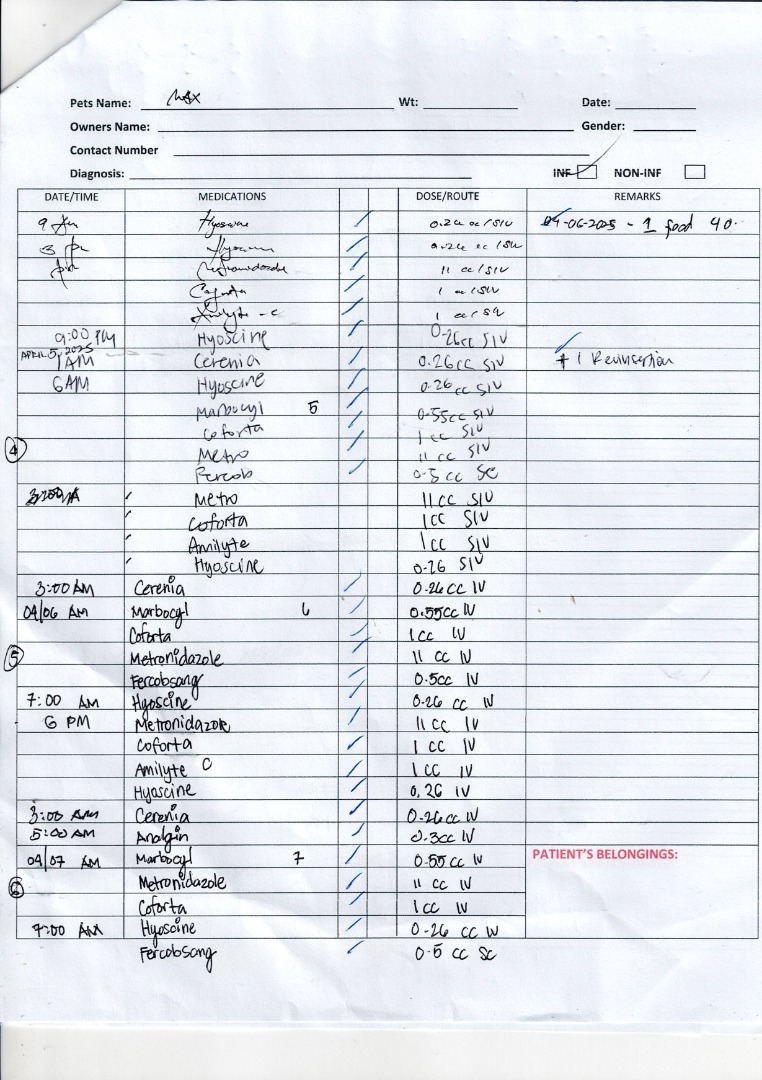 Pets Name: Max Wt: Date:
Owners Name: Gender:
Contact Number
Diagnosis: INF NON-INF
DATE/TIME MEDICATIONS DOSE/ROUTE REMARKS
9 Hyoscine 0.26 cc/SIV 04-06-2025 - 1 food 40.
3 pm Hyoscine 0.26 cc/SIV
pm Metronidazole 11 cc/SIV
Coforta 1 cc/SIV
Amilyte - C 1 cc/SIV
9:00 PM Hyoscine 0.26cc SIV
APRIL 5, 2025
1AM Cerenia 0.26cc SIV 1 Reinsertion
6AM Hyoscine 0.26 cc SIV
Marbocyl 5 0.55cc SIV
Coforta 1 cc SIV
4 Metro 11 cc SIV
Fercob 0.5 cc SC
Metro 11 cc SIV
Coforta 1 cc SIV
Amilyte 1cc SIV
Hyoscine 0.26 SIV
3:00 AM Cerenia 0.26 cc IV
04/06 AM Marbocyl 6 0.55cc IV
Coforta 1cc IV
5 Metronidazole 11 cc IV
Fercobsang 0.5cc IV
7:00 AM Hyoscine 0.26 cc IV
6 PM Metronidazole 11 cc IV
Coforta 1 cc IV
Amilyte C 1 cc IV
Hyoscine 0.26 IV
3:00 AM Cerenia 0.26cc IV
5:00 AM Analgin 0.3cc IV
04/07 AM Marbocyl 7 0.55 cc IV PATIENT'S BELONGINGS:
6 Metronidazole 11 cc IV
Coforta 1cc IV
7:00 AM Hyoscine 0.26 cc IV
Fercobsang 0.5 cc SC